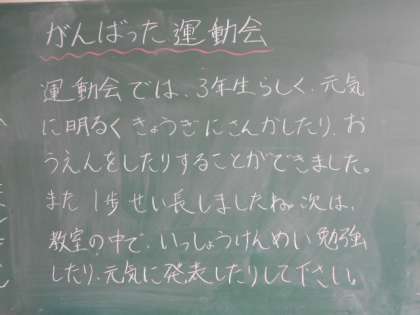 がんばった運動会
運動会では、3年生らしく、元気
に明るくきょうぎにさんかしたり、お
うえんをしたりすることができました。
また1歩せい長しましたね。次は、
教室の中で、いっしょうけんめい勉強
したり、元気に発表したりして下さい。